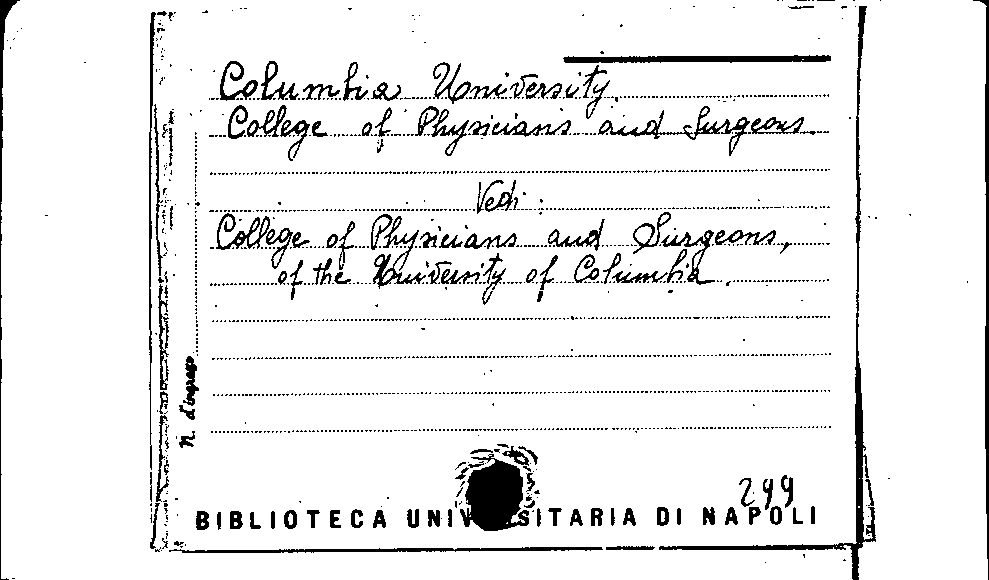 Columbia University.
College of Physicians and Surgeons.
Vedi:
College of Physicians and Surgeons,
of the University of Columbia.
N. d'ingresso
299
BIBLIOTECA DI NAPOLI